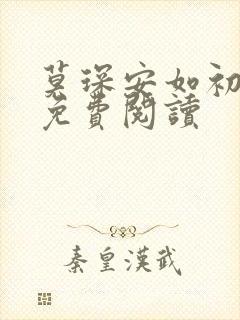 莫琛安如初
免費閱讀
秦皇漢武